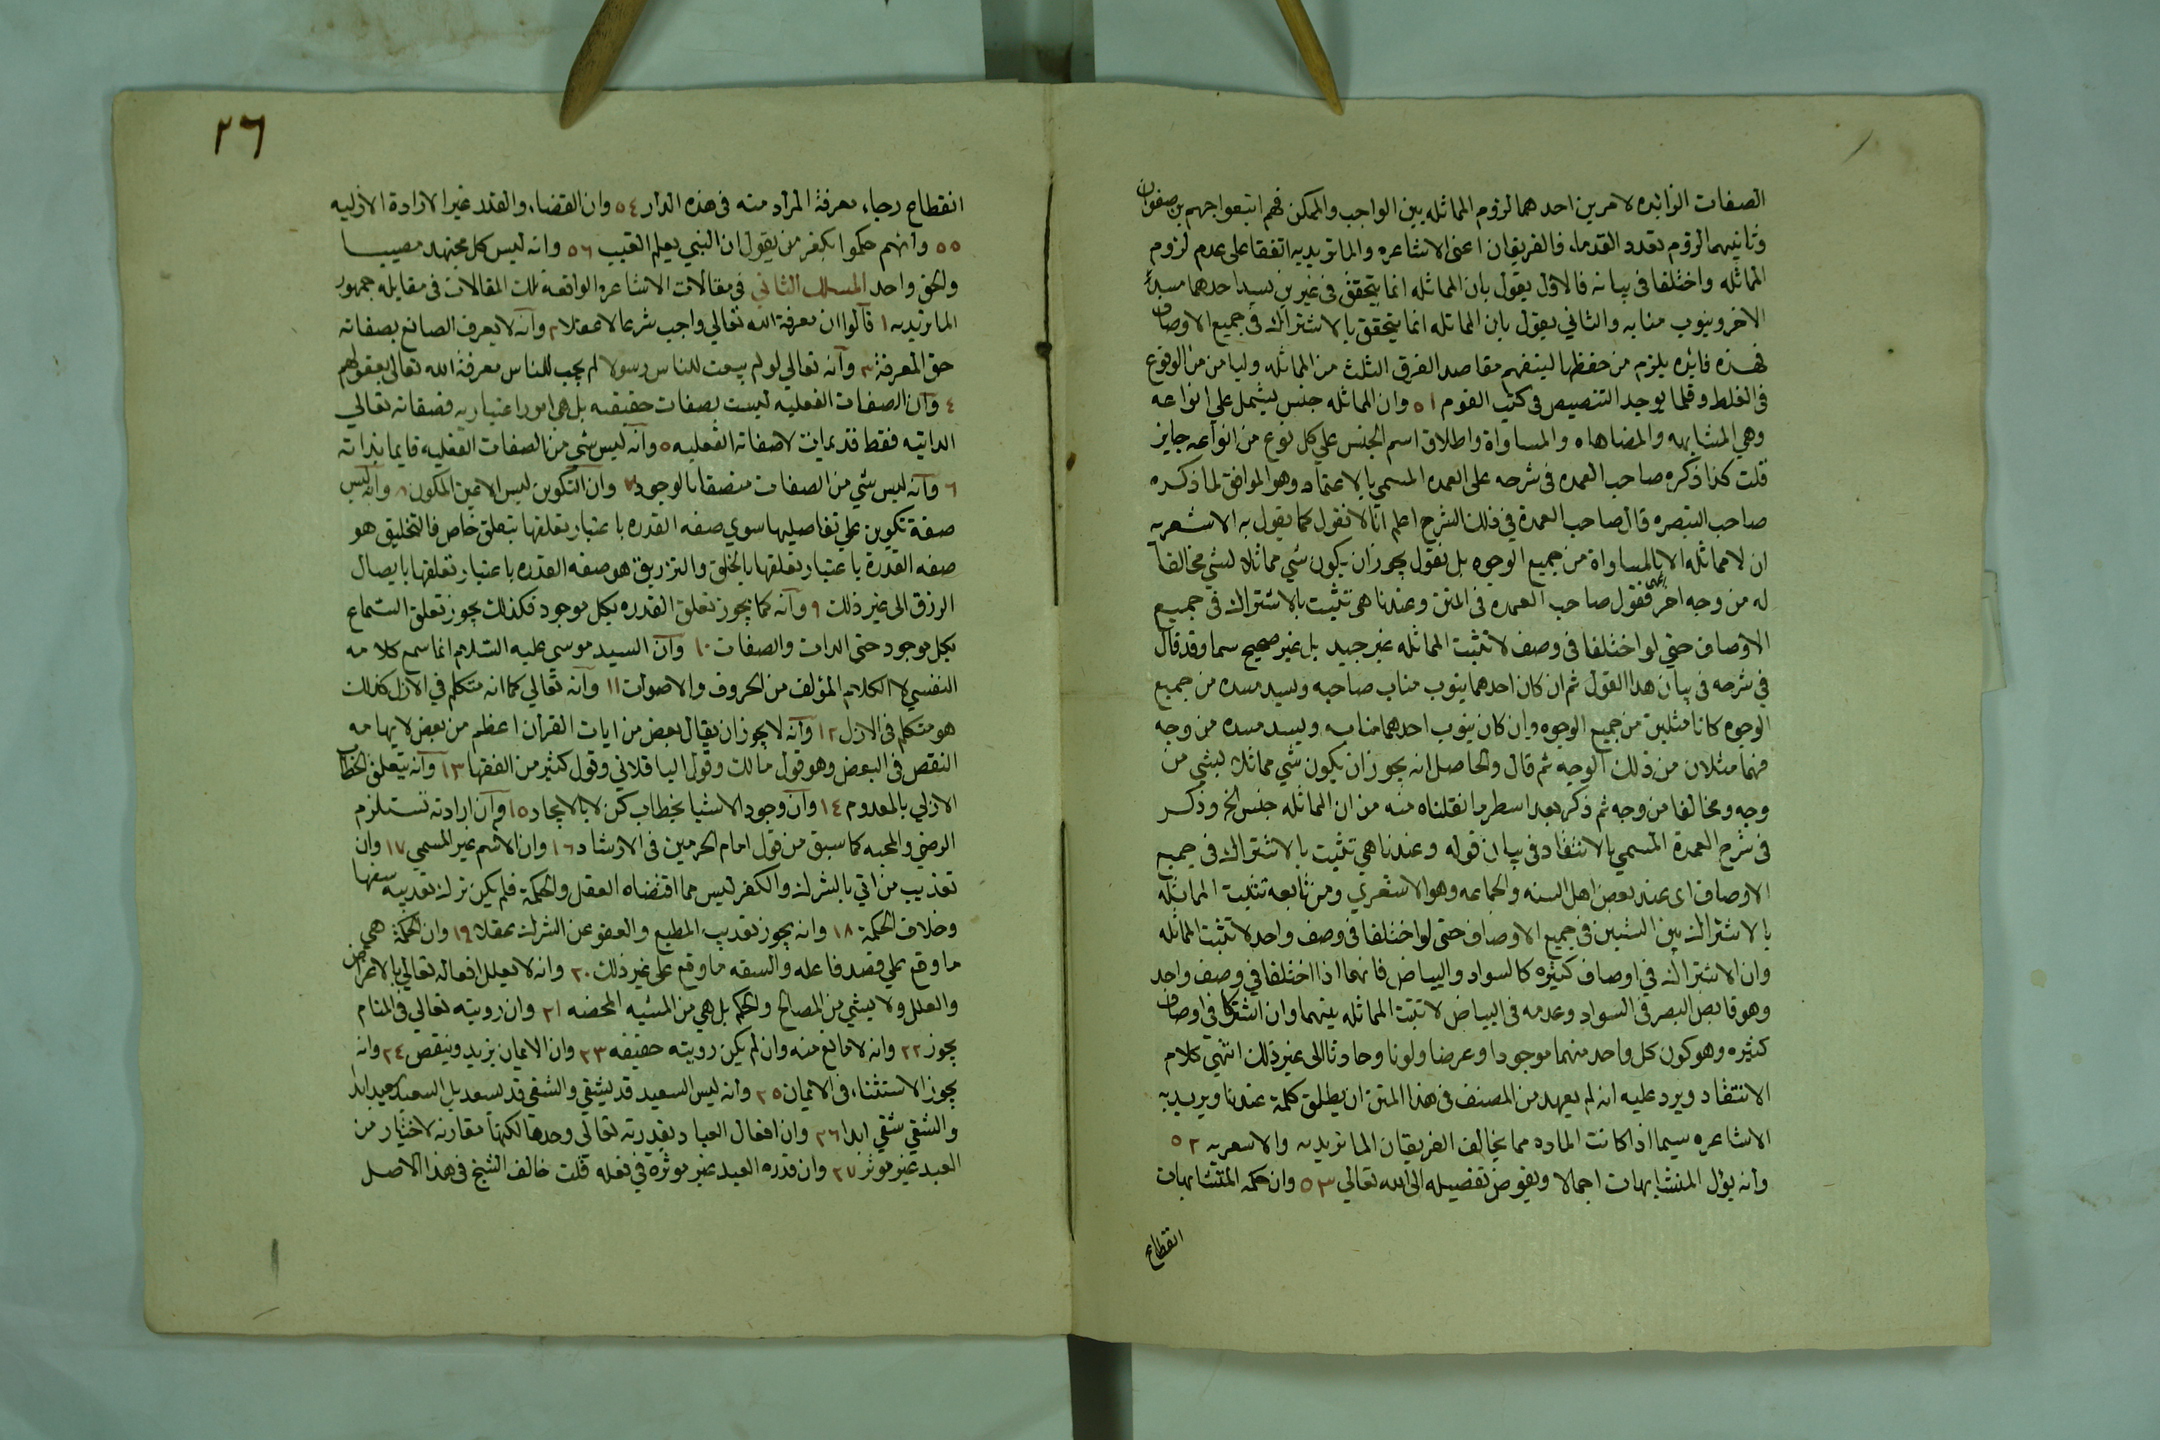 الصفات الزائده لامرين احدهما لزوم المماثله بين الواجب والممكن فهم اتبعوا جهم بن صفوان
وثانيهما لزوم تعدد القدماء فالفريقان اعنى الاشاعره والماتريديه اتفقا على عدم لزوم
المماثله واختلفا فى بيانه فالاول يقول بان المماثله انما يتحقق فى غيرين يسد احدهما مسد
الاخر وينوب منابه والثاني يقول بان المماثله انما يتحقق بالاشتراك فى جميع الاوصاف
فهذه فائده يلزم من حفظها ليتفهم مقاصد الفرق الثلث من المماثله وليامن من الوقوع
فى الغلط وقلما يوجد التنصيص فى كتب القوم ٥١ وان المماثله جنس يشتمل علي انواعه
وهي المشابهه والمضاهاه والمساواة واطلاق اسم الجنس علي كل نوع من انواعه جايز
قلت كذا ذكره صاحب العمده فى شرحه على العمده المسمي بالاعتماد وهو الموافق لما ذكره
صاحب التبصره قال صاحب العمدة في ذلك الشرح اعلم انا لا نقول كما يقول به الاشعريه
ان لا مماثله الا بالمساواة من جميع الوجوه بل نقول يجوز ان يكون شي مماثلا لشي مخالفا
له من وجه اخر فقول صاحب العمده فى المتن وعندنا هى تثبت بالاشتراك فى جميع
الاوصاف حتي لو اختلفا فى وصف لا تثبت المماثله غير جيد بل غير صحيح سما وقد قال
في شرحه فى بيان هذا القول ثم ان كان احدهما ينوب مناب صاحبه ويسد مسده من جميع
الوجوه كانا مثلين من جميع الوجوه وان كان ينوب احدهما منابه ويسد مسده من وجه
فهما مثلان من ذلك الوجه ثم قال والحاصل انه يجوز ان يكون شي مماثلا لشي من
وجه ومخالفا من وجه ثم ذكر بعد اسطر ما نقلناه منه من ان المماثله جنس الخ وذكر
فى شرح العمدة المسمي بالانتقاد فى بيان قوله وعندنا هي تثبت بالاشتراك فى جميع
الاوصاف اى عند بعض اهل السنه والجماعه وهو الاشعري ومن تابعه تثبت المماثله
بالاشتراك بين الشيئين فى جميع الاوصاف حتى لو اختلفا فى وصف واحد لا تثبت المماثله
وان الاشتراك في اوصاف كثيره كالسواد والبياض فانهما اذا اختلفا في وصف واحد
وهو قابض البصر فى السواد وعدمه فى البياض لا تثبت المماثله بينهما وان اشتركا في اوصاف
كثيره وهو كون كل واحد منهما موجودا وعرضا ولونا وحادثا الى غير ذلك انتهي كلام
الانتقاد ويرد عليه انه لم يعهد من المصنف فى هذا المتن ان يطلق كلمة عندنا ويريد به
الاشاعره سيما اذا كانت الماده مما يخالف الفريقان الماتريديه والاشعريه ٥٢
وانه يؤل المتشابهات اجمالا ويفوض تفصيله الى الله تعالي ٥٣ وان حكم المتشابهات
انقطاع
٢٦
انقطاع رجاء معرفة المراد منه فى هذه الدار ٥٤ وان القضاء والقدر غير الارادة الازليه
٥٥ وانهم حكموا بكفر من يقول ان النبي يعلم الغيب ٥٦ وانه ليس كل مجتهد مصيبا
والحق واحد المسلك الثاني في مقالات الاشاعره الواقعة تلك المقالات فى مقابلة جمهور
الماتريديه ١ قالوا ان معرفة الله تعالي واجب شرعا لا عقلا ٢ وانه لا يعرف الصانع بصفاته
حق المعرفة ٣ وانه تعالي لو لم يبعث للناس رسولا لم يجب للناس معرفة الله تعالى بعقولهم
٤ وان الصفات الفعليه ليست بصفات حقيقيه بل هي امور اعتباريه فصفاته تعالي
الذاتيه فقط قديمات لا صفاته الفعليه ٥ وانه ليس شي من الصفات الفعليه قايما بذاته
٦ وانه ليس شي من الصفات متصفا بالوجود ٧ وان التكوين ليس الا عين المكون ٨ وانه ليس
صفة تكوين علي تفاصيلها سوي صفه القدره باعتبار تعلقها بتعلق خاص فالتخليق هو
صفه القدرة باعتبار تعلقها بالخلق والترزيق هو صفه القدره باعتبار تعلقها بايصال
الرزق الى غير ذلك ٩ وانه كما يجوز تعلق القدره بكل موجود فكذلك يجوز تعلق السماع
بكل موجود حتى الذات والصفات ١٠ وان السيد موسي عليه السلام انما سمع كلامه
النفسي لا الكلام المؤلف من الحروف والاصوات ١١ وانه تعالي كما انه متكلم في الازل كذلك
هو متكلم فى الازل ١٢ وانه لا يجوز ان يقال بعض من ايات القران اعظم من بعض لايهامه
النقص فى البعض وهو قول مالك وقول الباقلاني وقول كثير من الفقها ١٣ وانه يتعلق الخطاب
الازلي بالمعدوم ١٤ وان وجود الاشيا بخطاب كن لا بالايجاد ١٥ وان ارادته تستلزم
الرضي والمحبه كما سبق من قول امام الحرمين فى الارشاد ١٦ وان الاسم غير المسمي ١٧ وان
تعذيب من اتي بالشرك والكفر ليس مما اقتضاه العقل والحكمة فلم يكن ترك تعذيبه سفها
وخلاف الحكمة ١٨ وانه يجوز تعذيب المطيع والعفو عن الشرك عقلا ١٩ وان الحكمة هي
ما وقع علي قصد فاعله والسفه ما وقع على غير ذلك ٢٠ وانه لا يعلل افعاله تعالي بالاغراض
والعلل ولا بشي من المصالح والحكم بل هي من المشيه المحضه ٢١ وان رويته تعالي فى المنام
يجوز ٢٢ وانه لا مانع منه وان لم يكن رويته حقيقه ٢٣ وان الايمان يزيد وينقص ٢٤ وانه
يجوز الاستثناء فى الايمان ٢٥ وانه ليس السعيد قد يشقي والشقي قد يسعد بل السعيد سعيد ابدا
والشقي شقي ابدا ٢٦ وان افعال العباد بقدرته تعالي وحدها لكنها مقارنه لاختيار من
العبد غير موثر ٢٧ وان قدره العبد غير موثرة في فعله قلت خالف الشيخ فى هذا الاصل